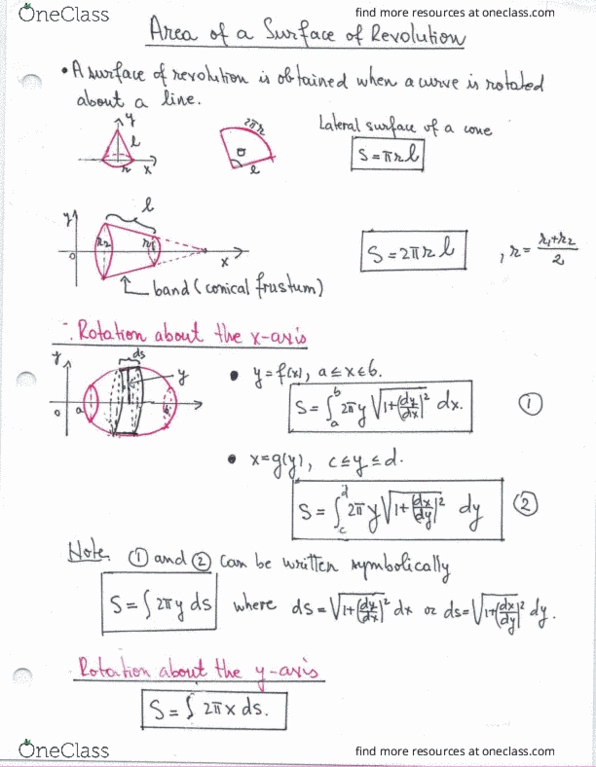 OneClass
find more resources at oneclass.com
Area of a Surface of Revolution
• A surface of revolution is obtained when a curve is rotated
about a line.
y
l
r
x
2πr
θ
l
Lateral surface of a cone
S = πrl
y
l
r2
r1
0
x
band (conical frustum)
S = 2πrl , r = (r1+r2)/2
Rotation about the x-axis
y
ds
y
0
a
b
• y = f(x), a ≤ x ≤ b.
S = ∫_a^b 2πy √(1+(dy/dx)^2) dx. ①
• x = g(y), c ≤ y ≤ d.
S = ∫_c^d 2πy √(1+(dx/dy)^2) dy ②
Note. ① and ② can be written symbolically
S = ∫ 2πy ds where ds = √(1+(dy/dx)^2) dx or ds = √(1+(dx/dy)^2) dy.
Rotation about the y-axis
S = ∫ 2πx ds.
OneClass
find more resources at oneclass.com